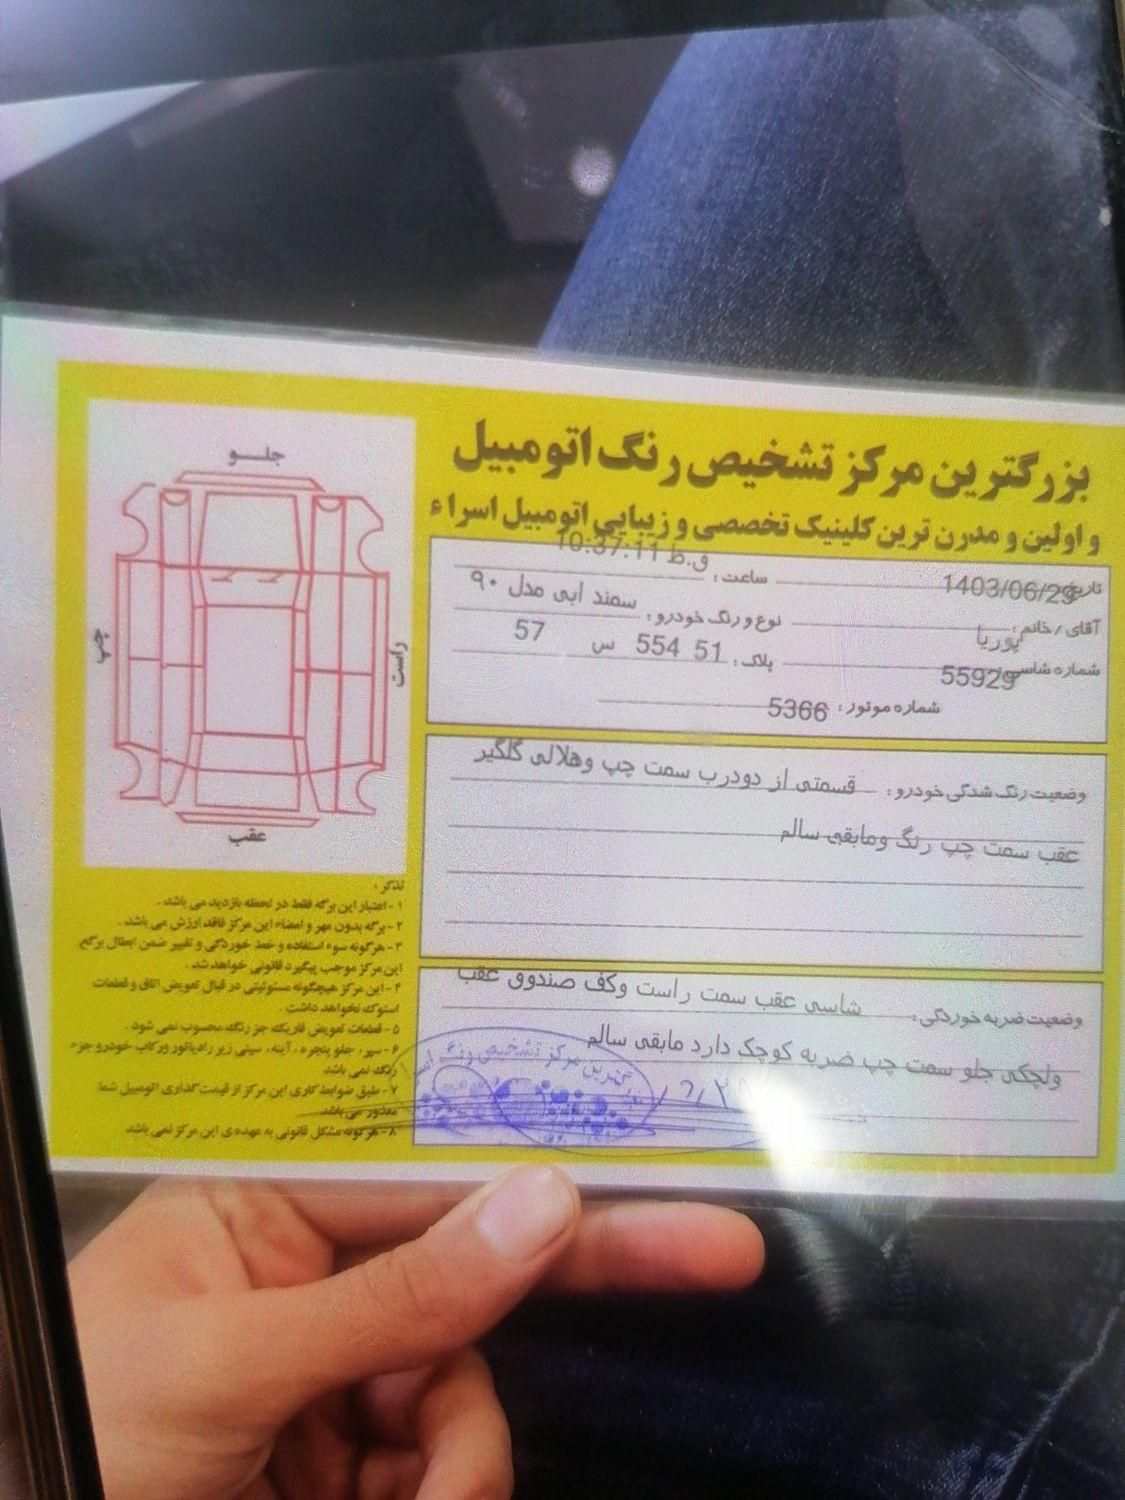 بزرگترین مرکز تشخیص رنگ اتومبیل
و اولین و مدرن ترین کلینیک تخصصی و زیبایی اتومبیل اسراء
تاریخ: 1403/06/29 ساعت: 10:37:11 ق.ظ
آقای / خانم: پوریا نوع و رنگ خودرو: سمند ابی مدل ۹۰
شماره شاسی: 55929 پلاک: 51 554 س 57
شماره موتور: 5366
وضعیت رنگ شدگی خودرو: قسمتی از دودرب سمت چپ وهلالی گلگیر
عقب سمت چپ رنگ ومابقی سالم
وضعیت ضربه خوردگی: شاسی عقب سمت راست وکف صندوق عقب
ولچکی جلو سمت چپ ضربه کوچک دارد مابقی سالم
جلــو
چپ
راست
عقب
تذکر:
۱- اعتبار این برگه فقط در لحظه بازدید می باشد.
۲- برگه بدون مهر و امضاء این مرکز فاقد ارزش می باشد.
۳- هرگونه سوء استفاده و خط خوردگی و تغییر ضمن ابطال برگه
این مرکز موجب پیگیرد قانونی خواهد شد.
۴- این مرکز هیچگونه مسئولیتی در قبال تعویض اتاق و قطعات
استوک نخواهد داشت.
۵- قطعات تعویض فابریک جز رنگ محسوب نمی شود.
۶- سپر، جلو پنجره، آینه، سینی زیر رادیاتور ورکاب خودرو جزء
رنگ نمی باشد
۷- طبق ضوابط کاری این مرکز از قیمت گذاری اتومبیل شما
معذور می باشد
۸- هرگونه مشکل قانونی به عهده ی این مرکز نمی باشد
بزرگترین مرکز تشخیص رنگ